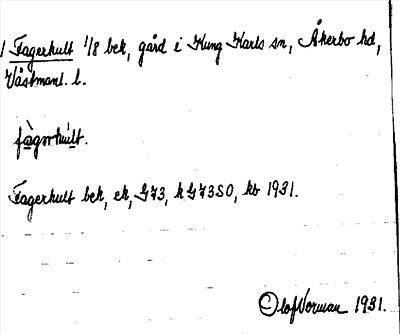 1 Fagerhult 1/8 bek, gård i Kung Karls sn, Åkerbo hd,
Västmanl. l.
Fagerhult bek, ek, G73, k G73SO, kb 1931.
Olof Norman 1931.